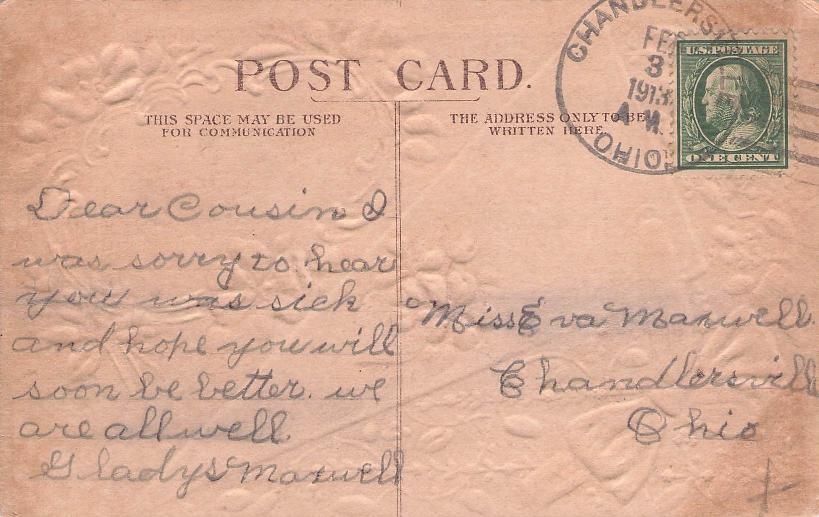 POST CARD.
THIS SPACE MAY BE USED
FOR COMMUNICATION
THE ADDRESS ONLY TO BE
WRITTEN HERE
CHANDLERSV
FEB
3
1913
A.M.
OHIO
U.S. POSTAGE
ONE CENT
Dear Cousin I
was sorry to hear
you was sick
and hope you will
soon be better. we
are all well.
Gladys Maxwell
Miss Eva Maxwell
Chandlersvill
Ohio